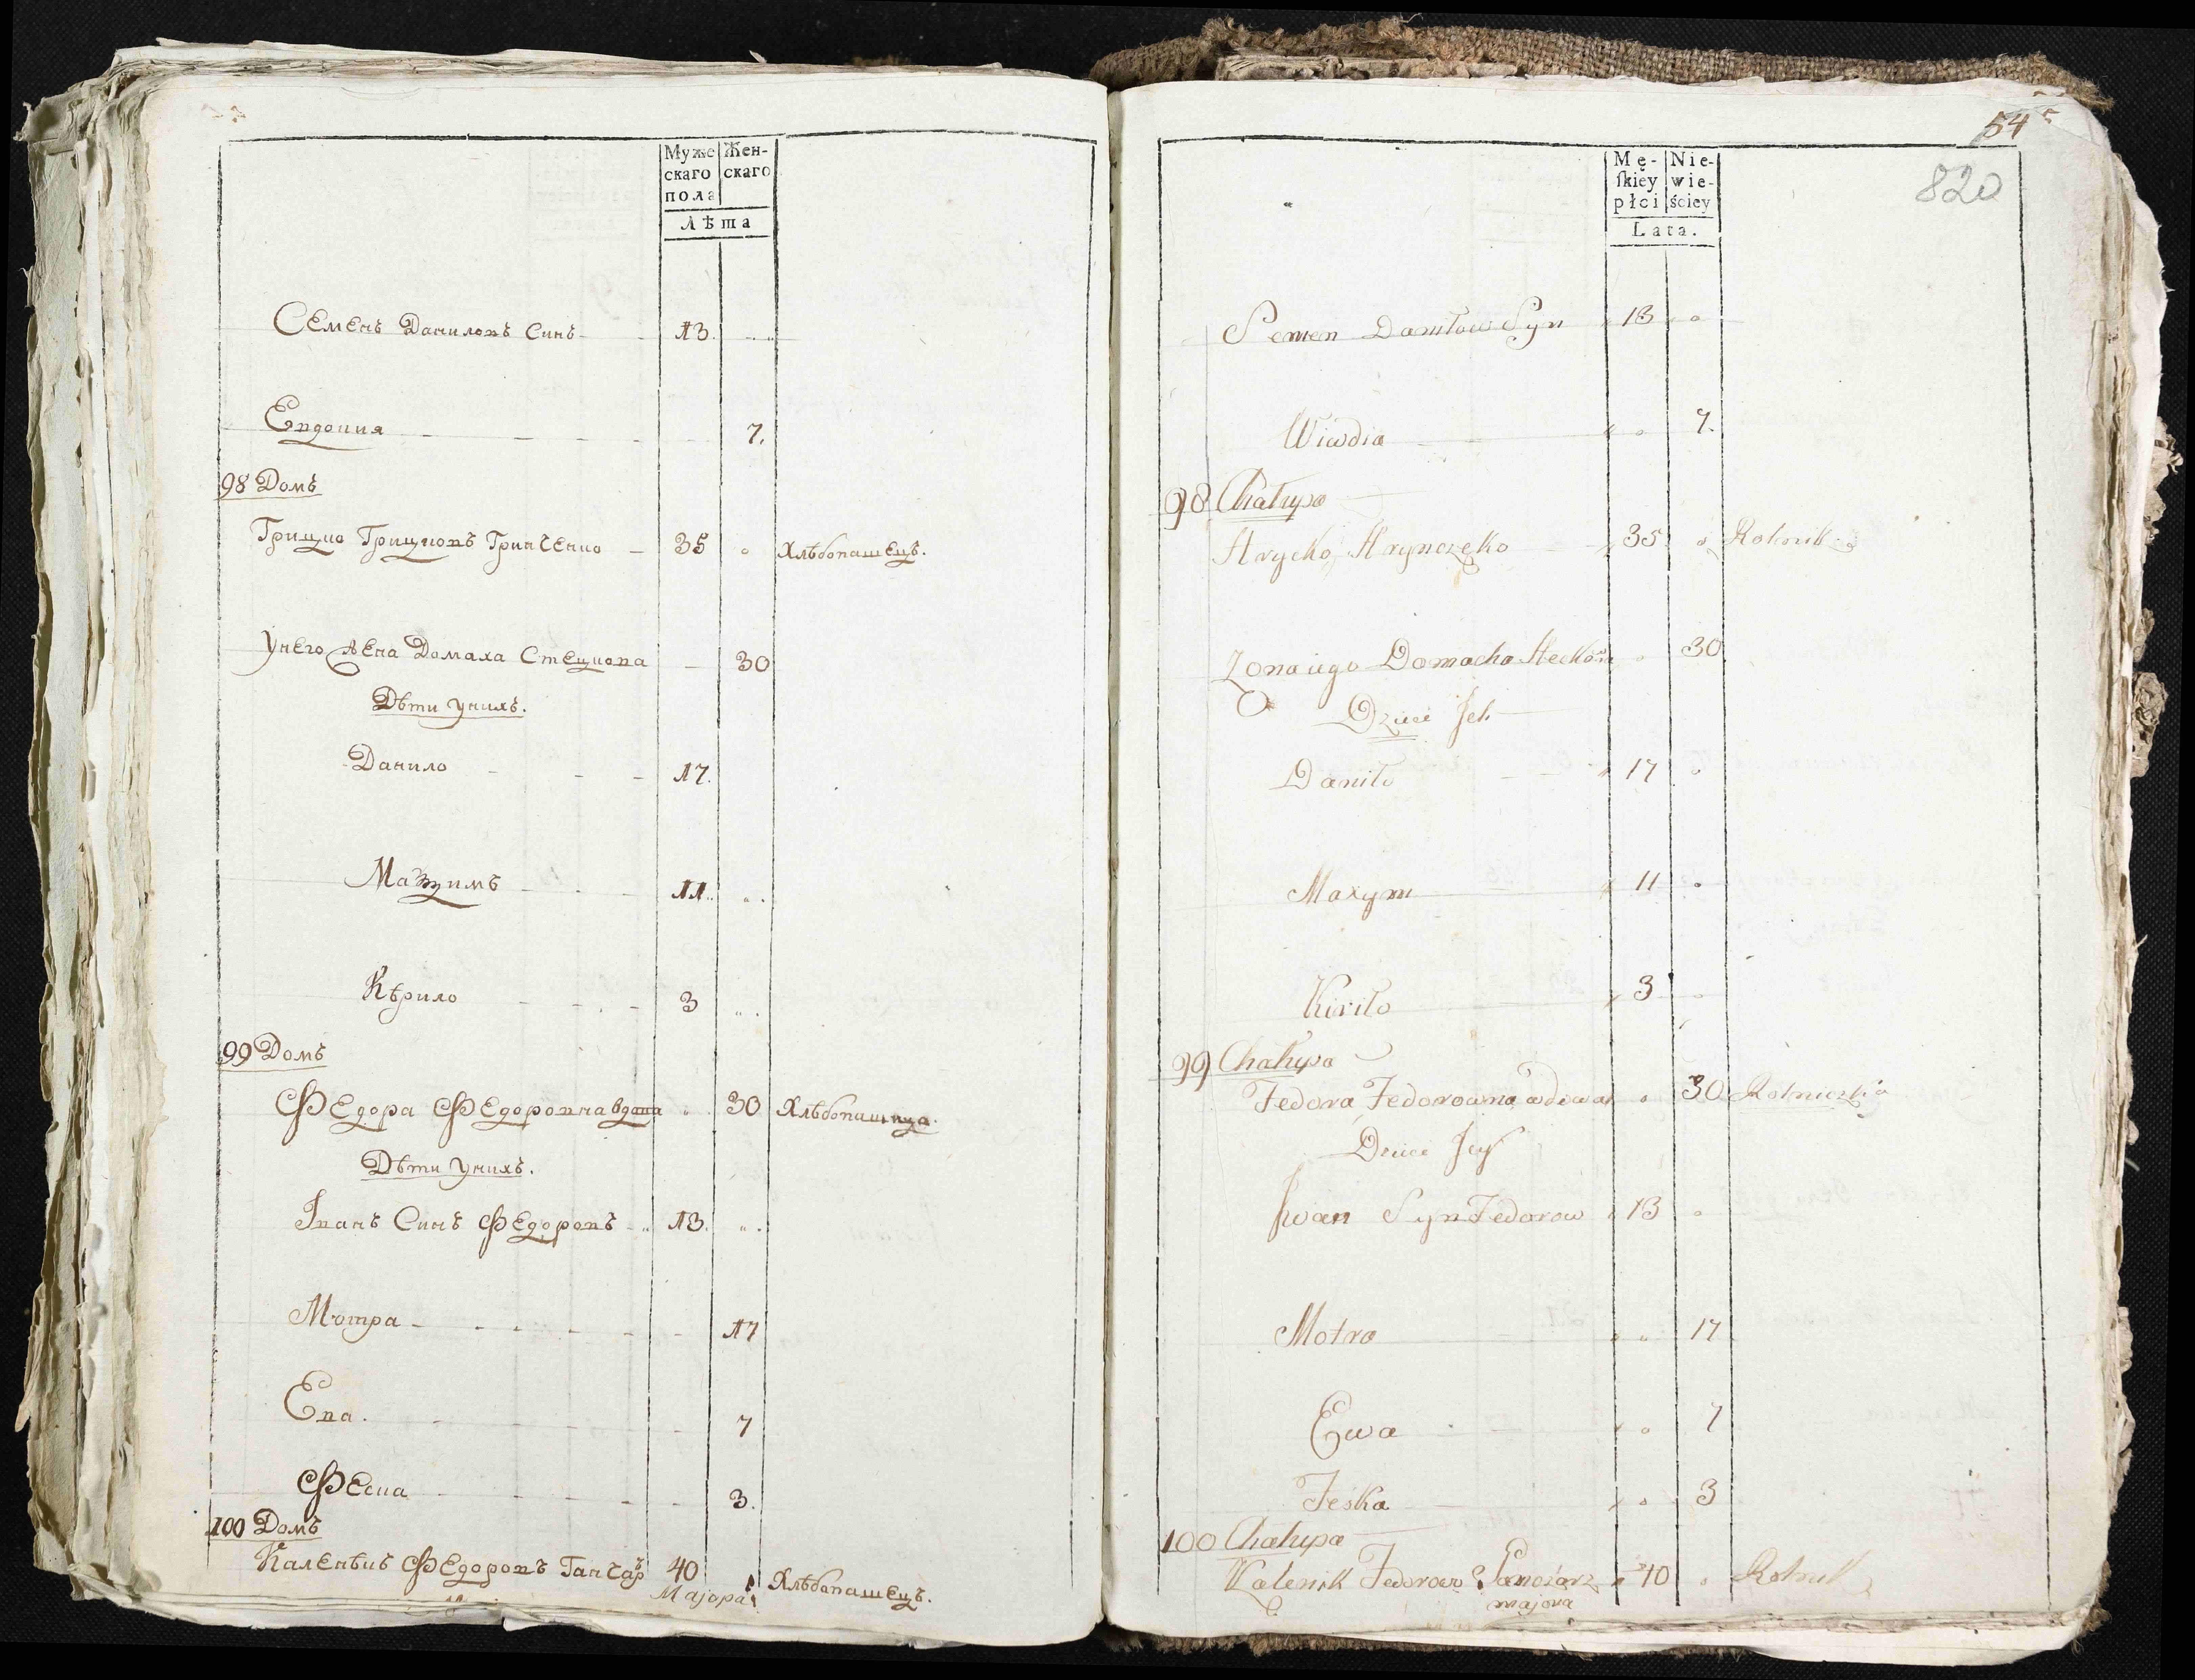 Муже Жен-
скаго скаго
пола
Лѣта
Семенъ Даниловъ Синъ 13.
Евдокия 7.
98 Домъ
Грицко Грицковъ Гринченко 35 Хлѣбопашецъ.
Унего Жена Домаха Стецкова 30
Дѣти Унихъ.
Данило 17.
Маѯимъ 11.
Кѣрило 3
99 Домъ
Федора Федоровна вдова 30 Хлѣбопашица.
Дѣти Унихъ.
Іванъ Синъ Федоровъ 13.
Мотра 17
Ева. 7
Феска 3.
100 Домъ
Каленѣкъ Федоровъ Ганчаръ 40 Хлѣбопашецъ.
Маjора
54
820
Mę- Nie-
ſkiey wie-
płci ściey
Lata.
Semen Daniłow Syn 13
Wiwdia 7.
98 Chałupa
Hrycko Hrynczęko 35 Rolnik
Zona iego Domacha Steckowa 30
Dzieci Ich
Daniło 17
Maxym 11
Kiriło 3
99 Chałupa
Fedora Fedorowna wdowa 30 Rolniczka
Dzieci Jey
Jwan Syn Fedorow 13
Motra 17
Ewa 7
Feśka 3
100 Chałupa
Kalenik Fedorow Ganczarz 40 Rolnik
majora